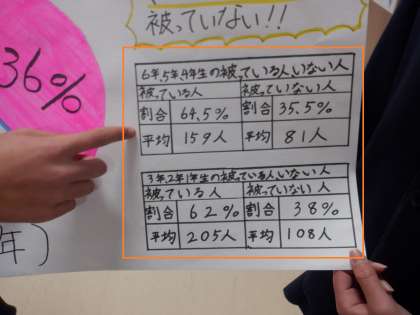 被っていない!!
36%
6年5年4年生の被っている人,いない人
被っている人 被っていない人
割合 64.5% 割合 35.5%
平均 159人 平均 81人
3年2年1年生の被っている人,いない人
被っている人 被っていない人
割合 62% 割合 38%
平均 205人 平均 108人
年)